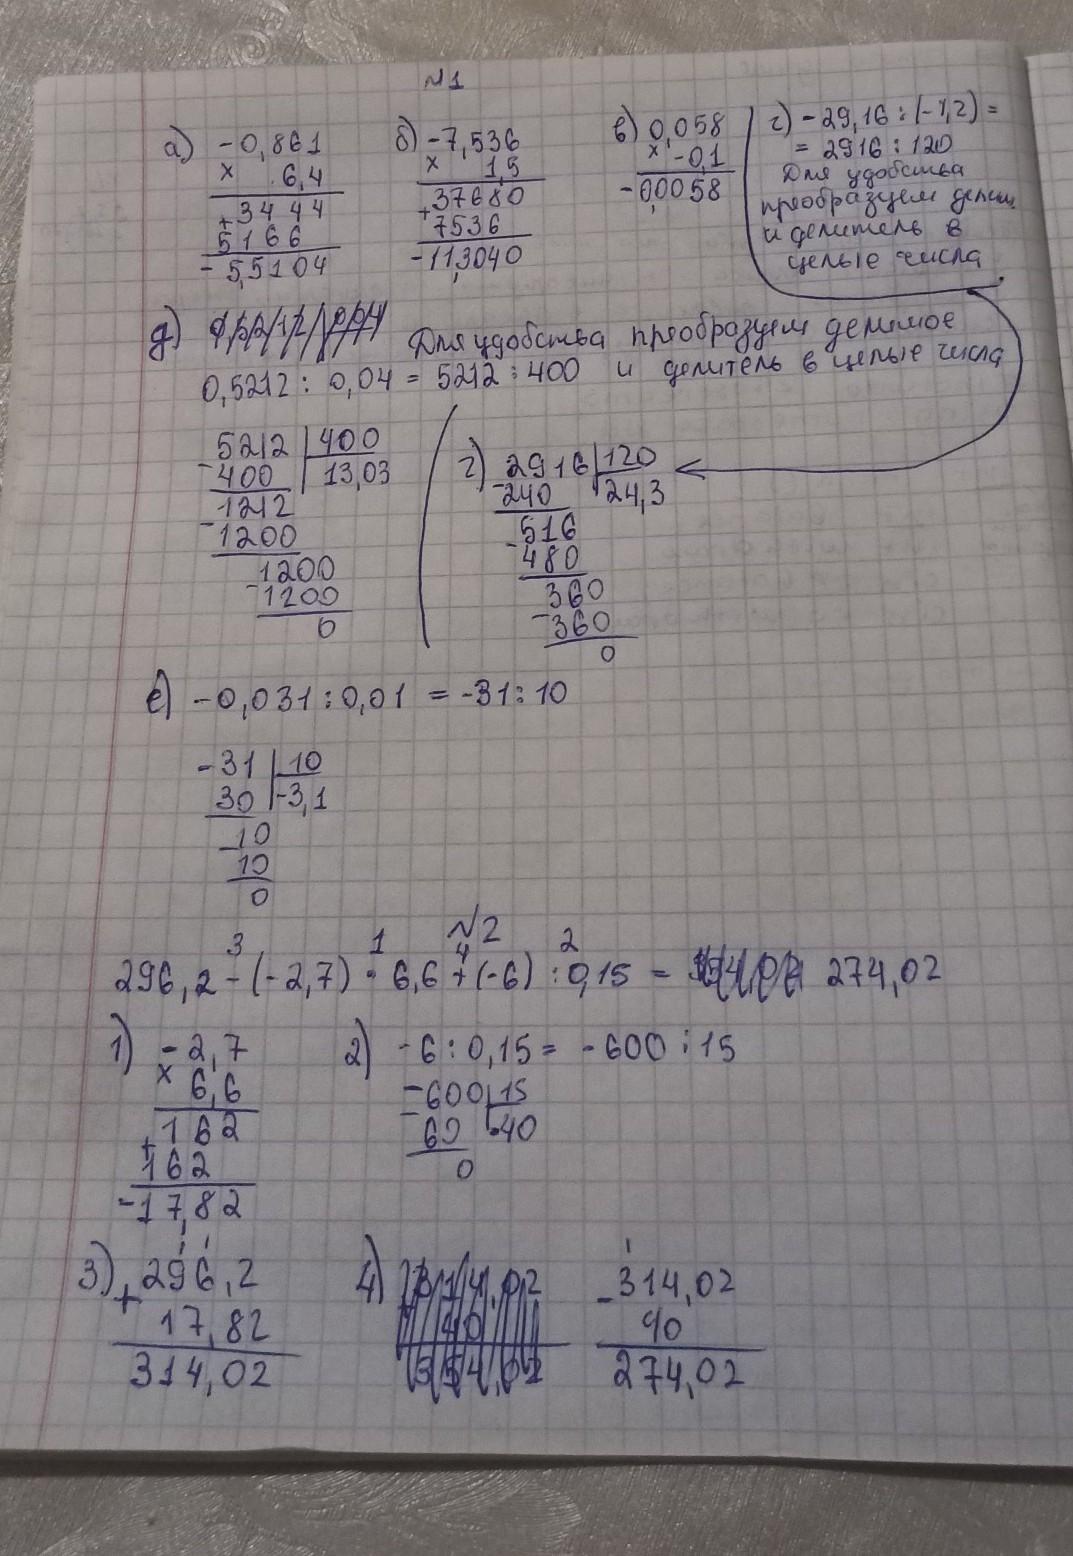 №1
а) -0,861
× 6,4
+3444
5166
-5,5104
б) -7,536
× 1,5
+37680
7536
-11,3040
в) 0,058
× -0,1
-0,0058
г) -29,16 : (-1,2) =
= 2916 : 120
Для удобства
преобразуем делим.
и делитель в
целые числа
д) Для удобства преобразуем делимое
0,5212 : 0,04 = 5212 : 400 и делитель в целые числа
-5212 | 400
400 | 13,03
-1212
1200
-1200
1200
0
г) -2916 | 120
240 | 24,3
-516
480
-360
360
0
е) -0,031 : 0,01 = -31 : 10
-31 | 10
30 | -3,1
-10
10
0
№2
3 1 4 2
296,2 - (-2,7) · 6,6 + (-6) : 0,15 = 274,02
1) -2,7
× 6,6
+162
162
-17,82
2) -6 : 0,15 = -600 : 15
-600 | 15
-60 | -40
0
3) +296,2
17,82
314,02
4) -314,02
40
274,02